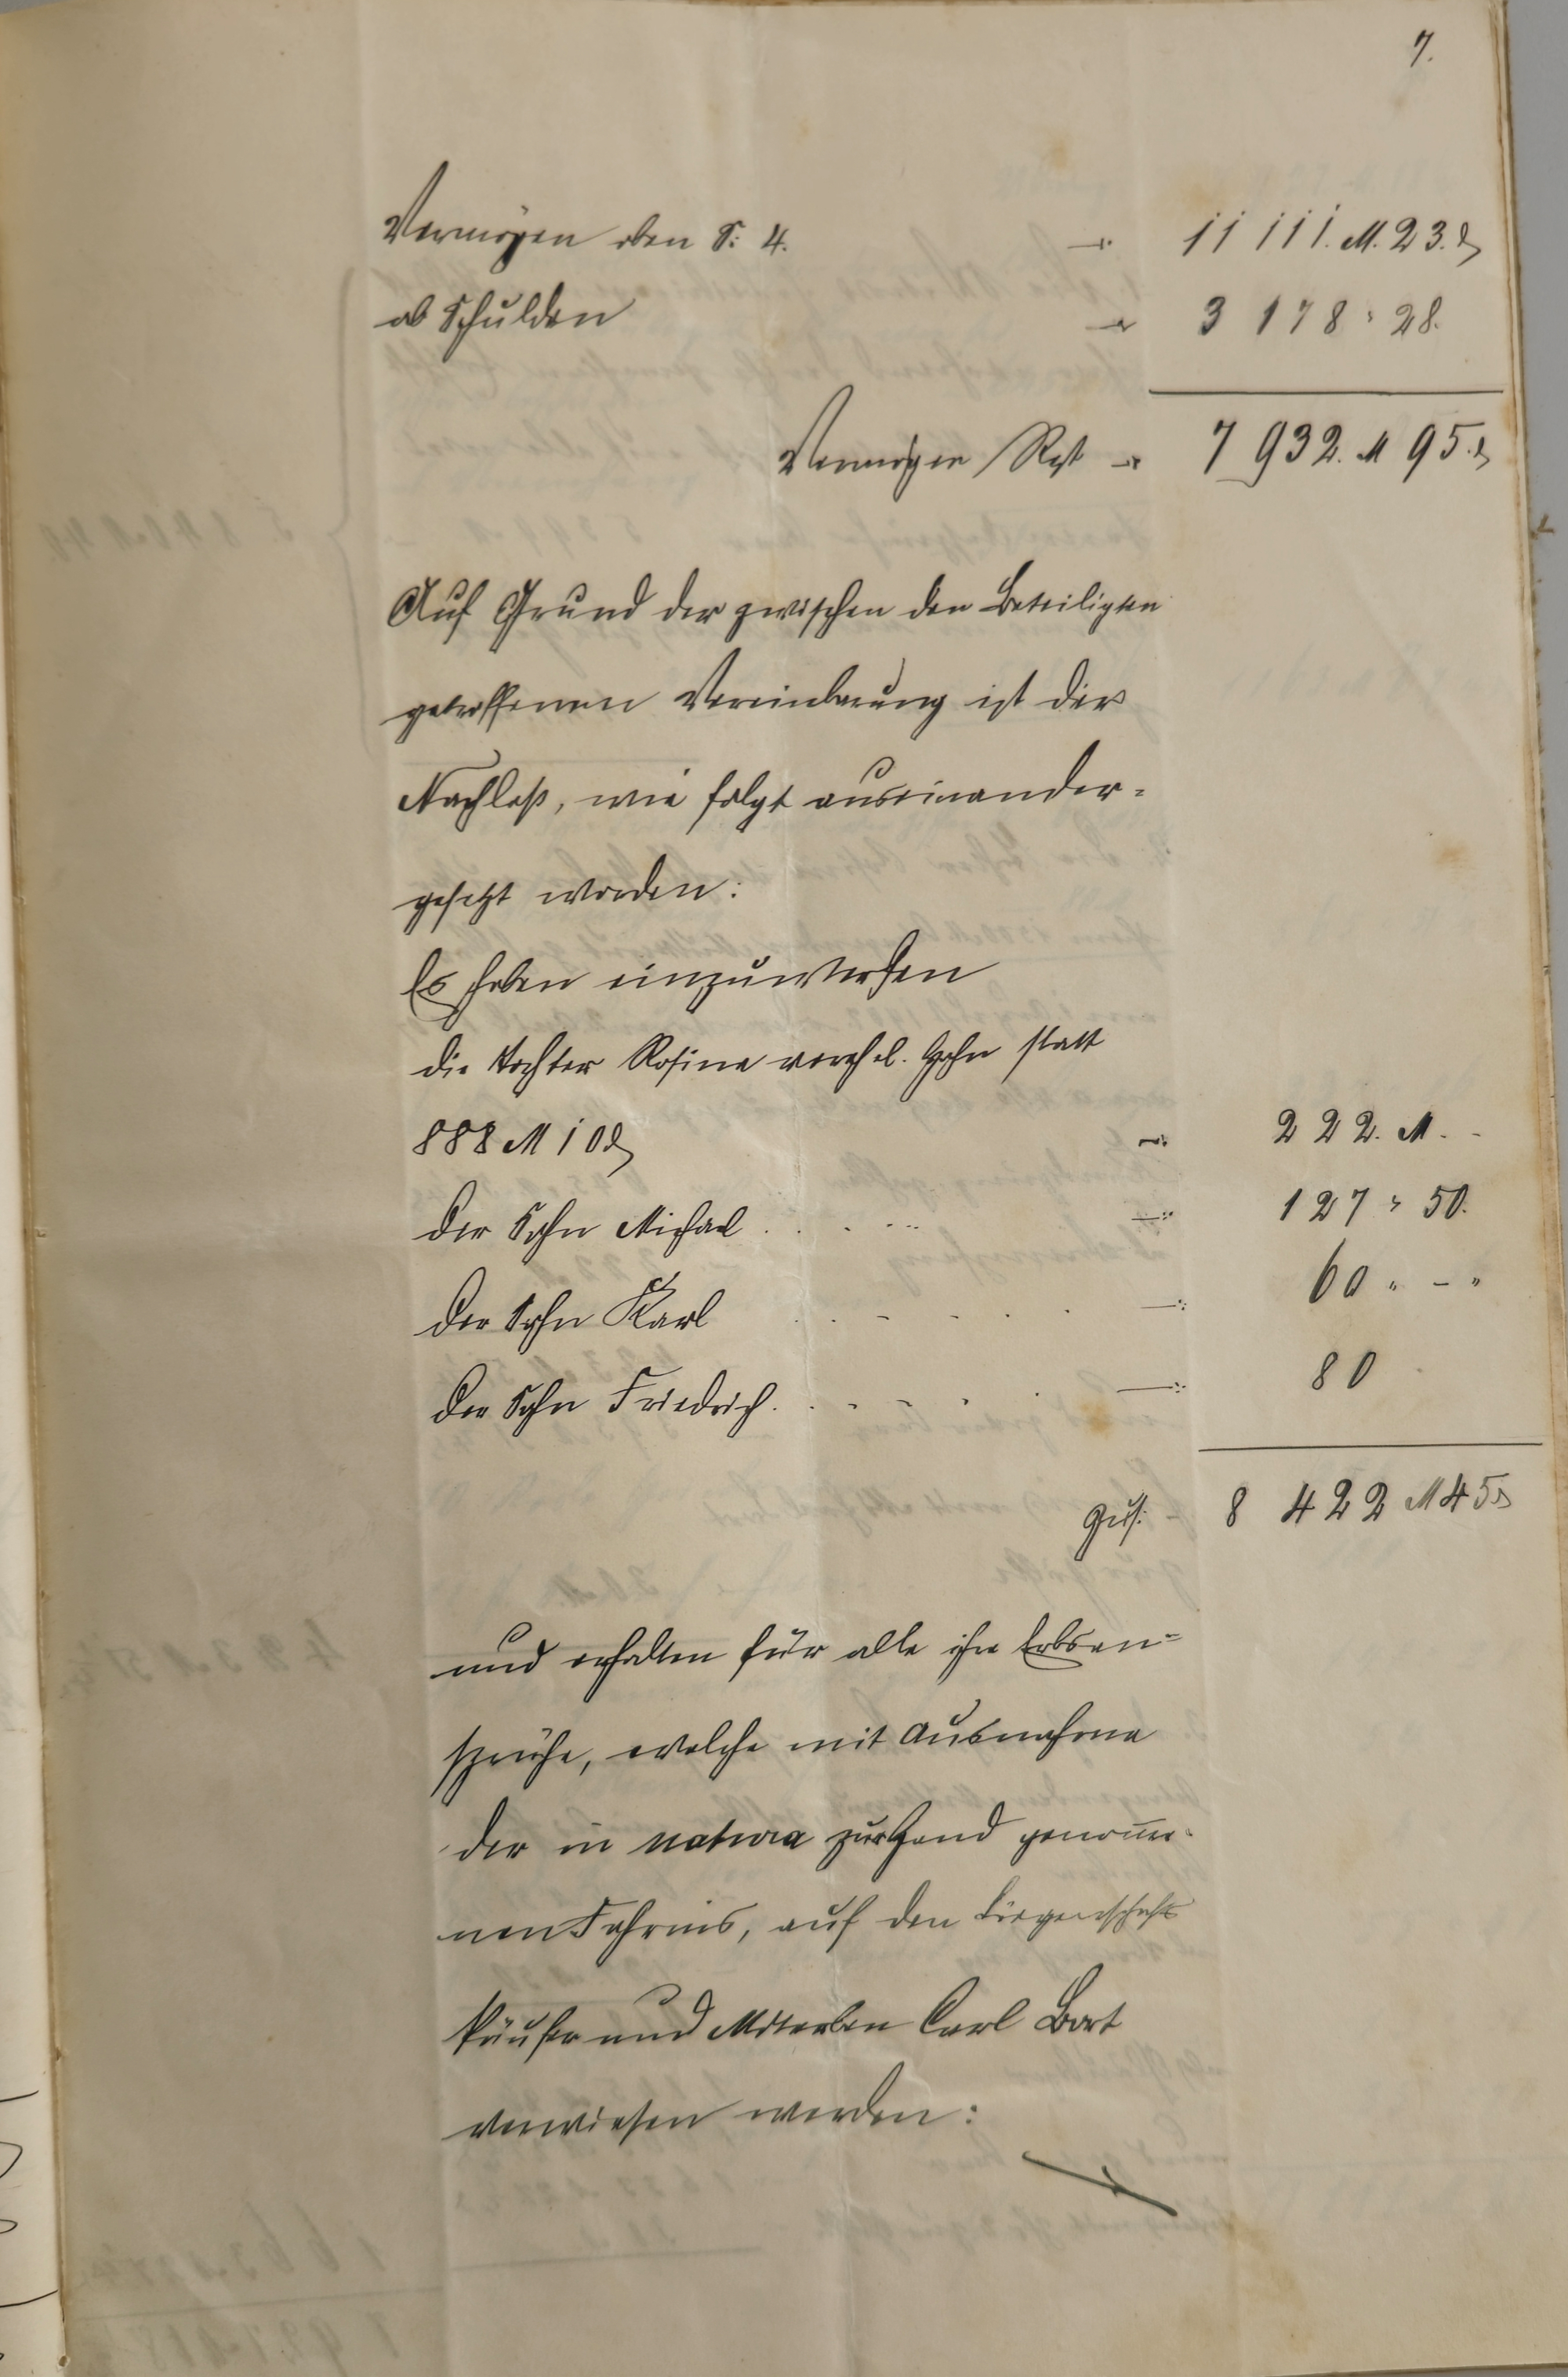 7.
Vermögen oben S: 4. —: 11 111. M. 23. ₰
ab Schulden —: 3 178 " 28.
Vermögen Rest —: 7 932. M 95. ₰
Auf Grund der zwischen den Beteiligten
getroffenen Vereinbarung ist der
Nachlaß, wie folgt auseinander-
gesetzt worden:
Es haben einzuwerfen
die Tochter Rosine verehel. Hahn statt
888 M 10 ₰ —: 222. M. -
der Sohn Michael . . . . . —: 127 " 50.
der Sohn Karl . . - - . . —: 60 " - "
der Sohn Friedrich . . - - . . —: 80
Zus: 8 422 M 45 ₰
und erhalten für alle ihre Erbsan-
sprüche, welche mit Ausnahme
der in natura zur Hand genomme-
nen Fahrnis, auf den Liegenschafts
käufer und Miterben Carl Bort
verwiesen werden: